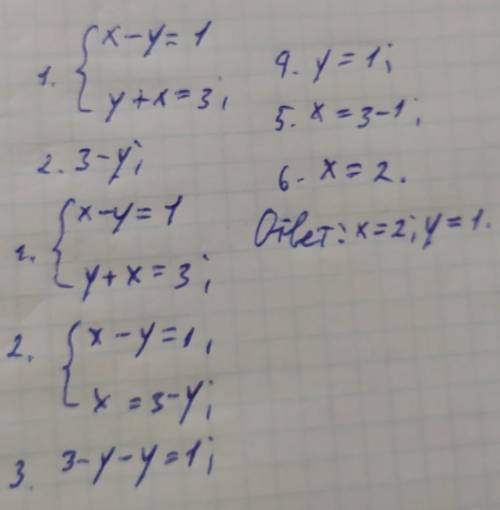 1. { x-y=1
y+x=3;
2. 3-y;
1. { x-y=1
y+x=3;
2. { x-y=1,
x=3-y;
3. 3-y-y=1;
4. y=1;
5. x=3-1;
6. x=2.
Ответ: x=2; y=1.